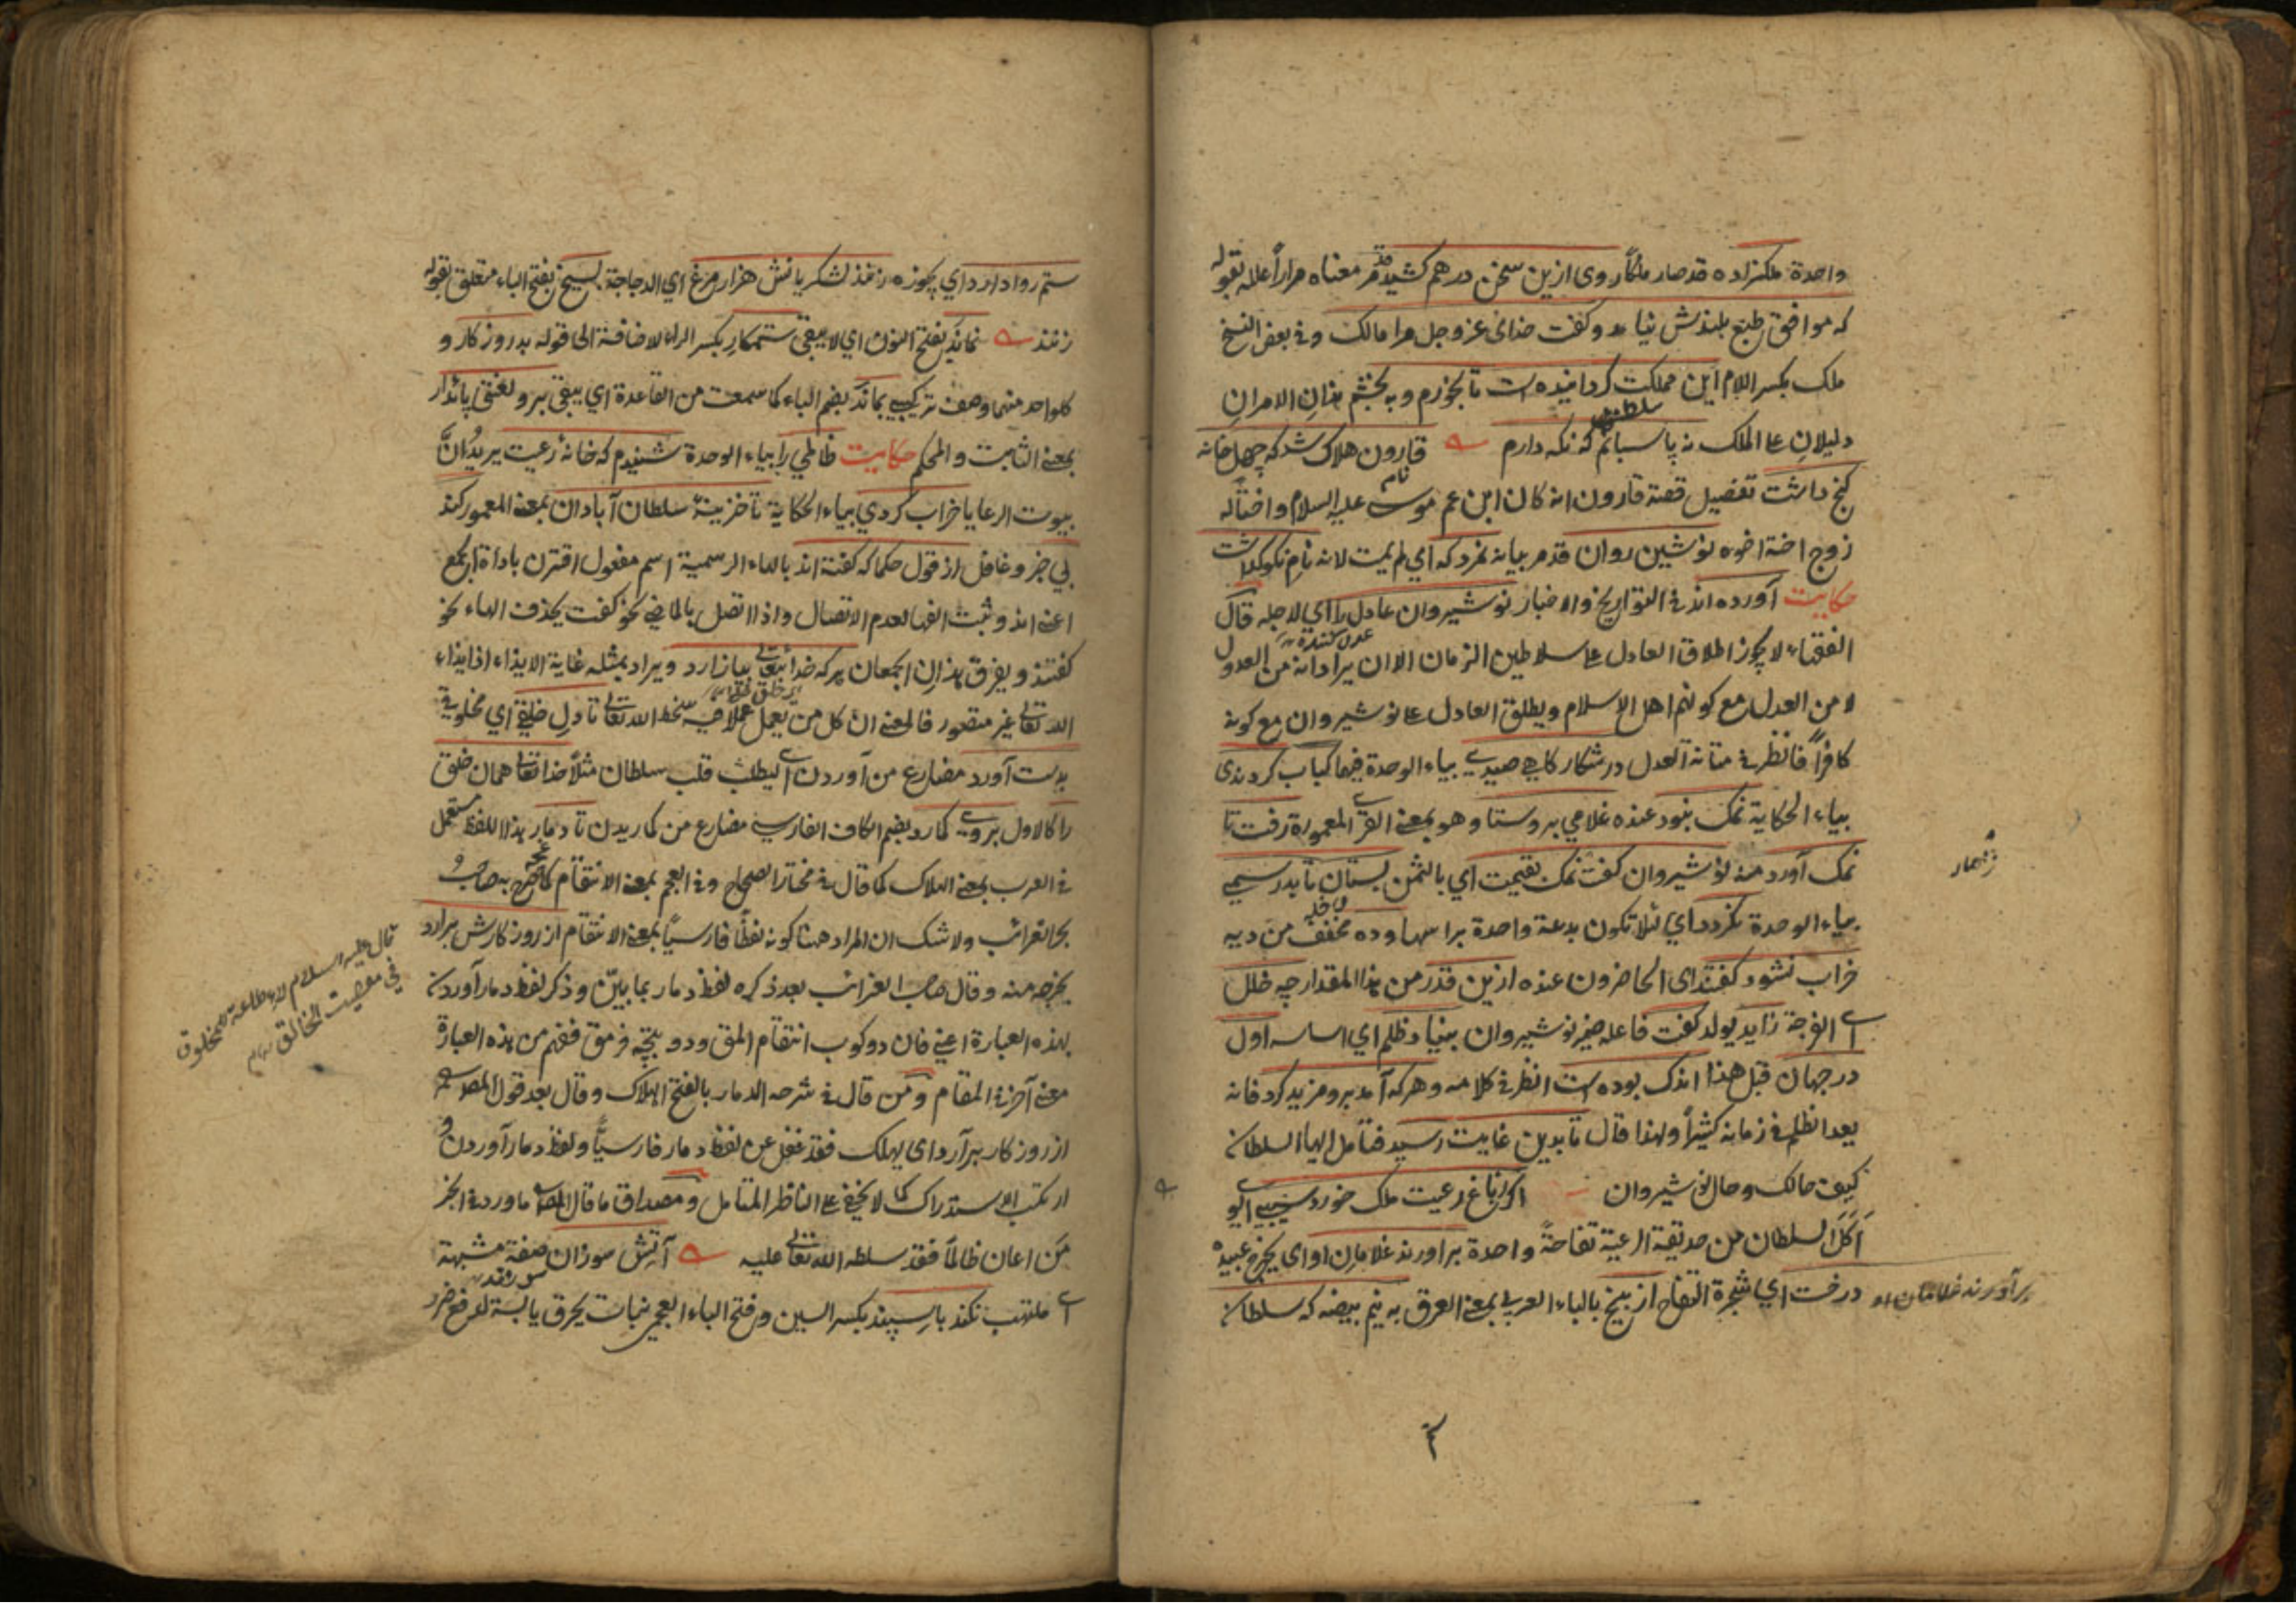 واحدة ملكزاده قد صار ملكاً روى ازين سخن درهم كشيد قد مر معناه مراراً علله بقوله
كه موافق طبع بلندش نيامد وكفت خداى عز وجل مرا مالك وفي بعض النسخ
ملك بكسر اللام اين مملكت كردانيده است تا بخورم وبه بخشم هذان الامران
دليلان على الملك نه پاسبانم كه نكه دارم قارون هلاك شد كه چهل خانه
كنج داشت تفصيل قصة قارون انه كان ابن عم موسى عليه السلام
نوشين روان قد مر بيانه نمرد كه اي لم يمت لانه نام نكو كذاشت
حكايت آورده اند في التواريخ والاخبار نوشيروان عادل را اي لاجله قال
الفقهاء لا يجوز اطلاق العادل على سلاطين الزمان الا ان يراد انه من العدول
لا من العدل مع كونهم اهل الاسلام ويطلق العادل على نوشيروان مع كونه
كافراً فانظر في متانة العدل در شكار كاهي صيدي بياء الوحدة فيها كباب كردندى
بياء الحكاية نمك نبود عنده غلامي بروستا وهو بمعنى القرى المعمورة رفت تا
نمك آورد منه نوشيروان كفت نمك بقيمت اي بالثمن بستان تا بدرسمي
بياء الوحدة نكردد اي لئلا تكون بدعة واحدة براسها وده مخفف من ديه
خراب نشود كفتند اى الحاضرون عنده ازين قدر من هذا المقدار چه خلل
اي الفرجة زايد يولد كفت فاعله ضمير نوشيروان بنياد ظلم اي اساسه اول
در جهان قبل هذا اندك بوده است انظر في كلامه وهركه آمد برو مزيد كرد فانه
بعد الظلم في زمانه كثيراً ولهذا قال تا بدين غايت رسيد فتأمل ايها السلطان
كيف حالك وحال نوشيروان اكر زباغ رعيت ملك خورد سيبي اي لو
اكل السلطان من حديقة الرعية تفاحة واحدة براورند غلامان او اى يخرج عبيده
درخت اي شجرة التفاح از بيخ بالباء العربي بمعنى العرق به نيم بيضه كه سلطان
برآورند غلامان او
ستم روا دارد اي يجوزه زنند لشكريانش هزار مرغ اي الدجاجة بسيخ بفتح الباء متعلق بقوله
زنند نماند بفتح النون اي لا يبقى ستمكار بكسر الراء لاضافته الى قوله بد روزكار و
كلواحد منهما وصف تركيبي بماند بضم الباء كما سمعت من القاعدة اي يبقى برو لعنتى پائدار
بمعنى الثابت والمحكم حكايت ظالمي را بياء الوحدة شنيدم كه خانهٔ رعيت يريد ان
بيوت الرعايا خراب كردي بياء الحكاية تا خزينهٔ سلطان آبادان بمعنى المعمور كند
بي خبر وغافل از قول حكما كه كفته اند بالهاء الرسمية اسم مفعول اقترن باداة الجمع
اعنى اند وثبت الفها لعدم الاتصال واذا اتصل بالماضي نحو كفت يحذف الهاء نحو
كفتند ويفرق بهذا بين الجمعان هركه خداى تعالى بيازارد ويراد بمثله غاية الايذاء اذ ايذاء
الله تعالى غير متصور فالمعنى ان كل من يعمل عملا فيه سخط الله تعالى تا دل خلقى اي مخلوق
بدست آورد مضارع من آوردن اي ليطلب قلب سلطان مثلاً خدا تعالى همان خلق
را كالاول بروى كمارد بضم الكاف الفارسي مضارع من كماريدن تا دمار هذا اللفظ مستعمل
في العرب بمعنى الهلاك كما قال في مختار الصحاح وفي العجم بمعنى الانتقام كما صرح به صاحب
بحر الغرائب ولا شك ان المراد ههنا كونه لفظاً فارسياً بمعنى الانتقام از روزكارش برارد
يخرجه منه وقال صاحب الغرائب بعد ذكره لفظ دمار بما بيّن وذكر لفظ دمار آوردن
بهذه العبارة اعني فان دوكوب انتقام المق ففهم من هذه العبارة
معنى آخر في المقام ومن قال في شرحه الدمار بالفتح الهلاك وقال بعد قول المصنف
از روزكار برآرد اى يهلك فقد غفل عن لفظ دمار فارسياً ولفظ دمار آوردن و
ارتكب الاستدراك كما لا يخفى على الناظر المتأمل ومصداق ما قال المصنف ما ورد في الخبر
من اعان ظالماً فقد سلطه الله تعالى عليه آتش سوزان صفة مشبهة
اي ملتهب نكند با سپند بكسر السين وفتح الباء العجمي نبات يحرق يابسة لدفع ضرر
قال عليه السلام لا طاعة للمخلوق
في معصيت الخالق